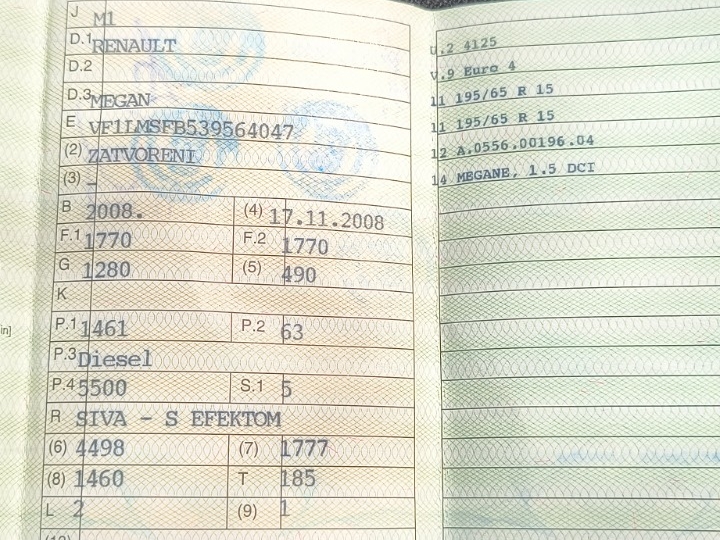 J M1
D.1 RENAULT
D.2
D.3 MEGAN
E VF1LMSFB539564047
(2) ZATVORENI
(3) -
B 2008. (4) 17.11.2008
F.1 1770 F.2 1770
G 1280 (5) 490
K
P.1 1461 P.2 63
P.3 Diesel
P.4 5500 S.1 5
R SIVA - S EFEKTOM
(6) 4498 (7) 1777
(8) 1460 T 185
L 2 (9) 1
in]
U.2 4125
V.9 Euro 4
11 195/65 R 15
11 195/65 R 15
12 A.0556.00196.04
14 MEGANE, 1.5 DCI